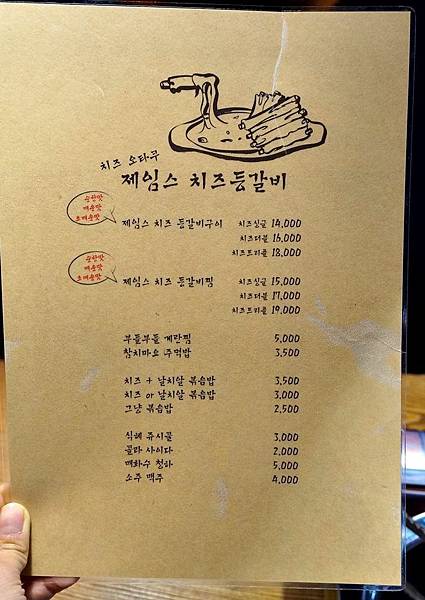 치즈 오타쿠
제임스 치즈등갈비
순한맛
매운맛
초매운맛
제임스 치즈 등갈비구이 치즈싱글 14,000
치즈더블 16,000
치즈트리플 18,000
순한맛
매운맛
초매운맛
제임스 치즈 등갈비찜 치즈싱글 15,000
치즈더블 17,000
치즈트리플 19,000
부들부들 계란찜 5,000
참치마요 주먹밥 3,500
치즈 + 날치살 볶음밥 3,500
치즈 or 날치살 볶음밥 3,000
그냥 볶음밥 2,500
식혜 쥬시쿨 3,000
콜라 사이다 2,000
매화수 청하 5,000
소주 맥주 4,000